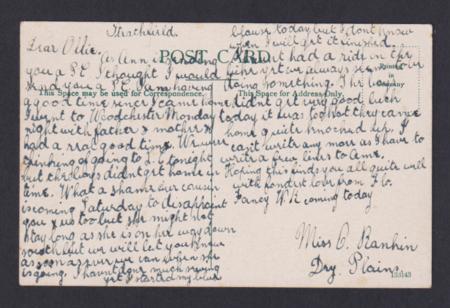 Strathfield.
Dear Ollie.
As Ann is sending
you a P.C I thought I would
send you a P.C. I'm having
a good time since I came home
I went to Woodchester Monday
night with father & mother &
had a real good time. We were
thinking of going to tonight
but the boys didnt get home in
time. What a shame our cousin
is coming Saturday to disappoint
you & us too but she might not
stay long as she is on her way down
south but we will let you know
as soon as ever we can when she
is going. I havnt done much sewing
yet I started my blue
blouse today but I dont know
when I will get it finished.
I havnt had a ride in the
here yet we always seem to be
doing something. The boys
didnt get very good luck
today it was too hot they came
home quite knocked up. I
can't write any more as I have to
write a few lines to
Hoping this finds you all quite well
with fondest love from
Fancy W.R coming today
POST CARD
Printed
in
Germany
This Space may be used for Correspondence.
This Space for Address
Miss O. Rankin
Dry Plain